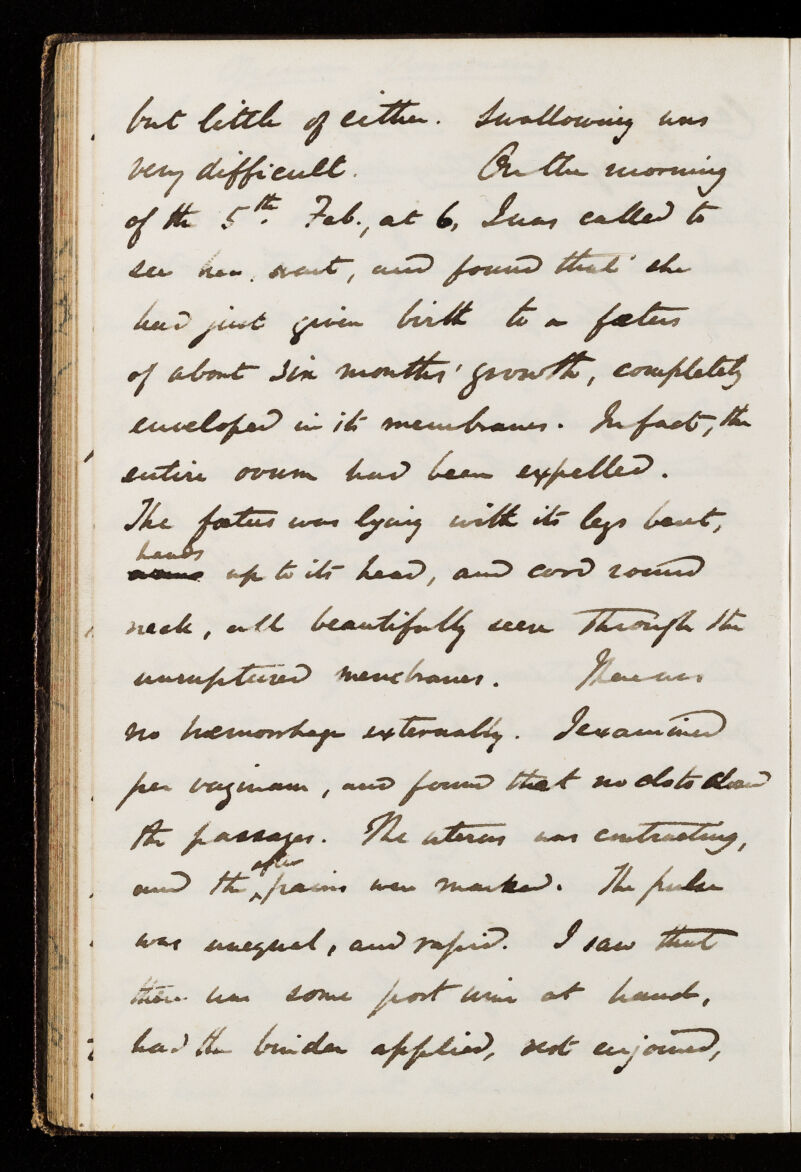 but little of either. Swallowing was
very difficult. On the morning
of the 5th. Feb., at 6, I was called to
see her, went, and found that she
had just given birth to a fœtus
of about six months' growth, completely
enveloped in its membranes. In fact, the
entire ovum had been expelled.
The fœtus was lying with its legs bent,
hands
arms up to its head, and cord round
neck, all beautifully seen through the
unruptured membranes. There was
no hæmorrhage externally. I examined
per vaginam, and found that no clots closed
the passages. The uterus was contracting,
after
and the pains were marked. The pulse
was unequal, and rapid. I saw that
there was some port wine at hand,
had the binder applied, rest enjoined,